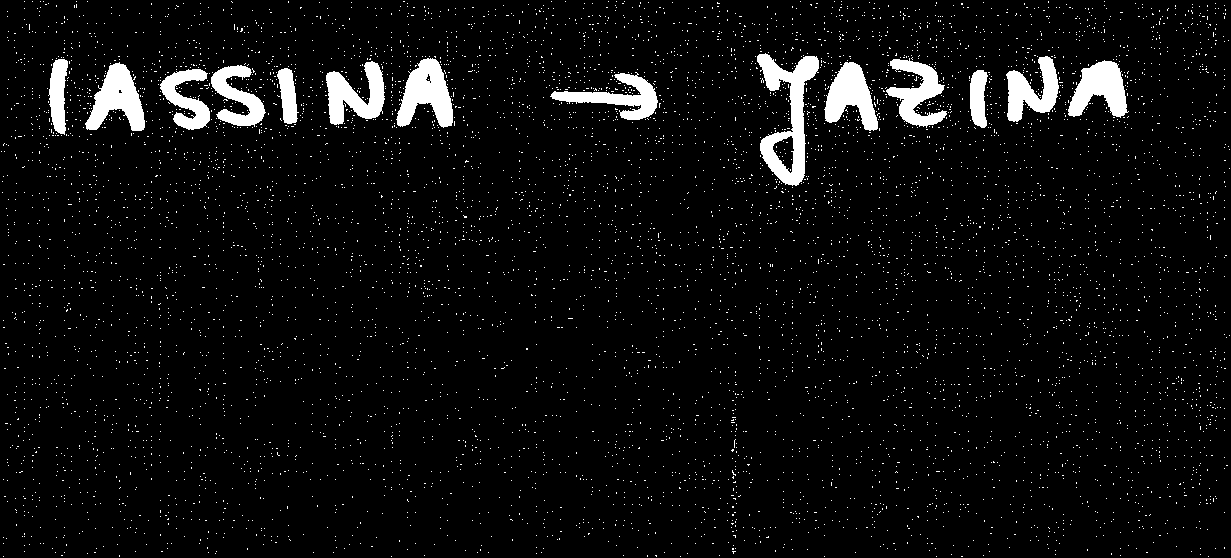 IASSINA → YAZINA